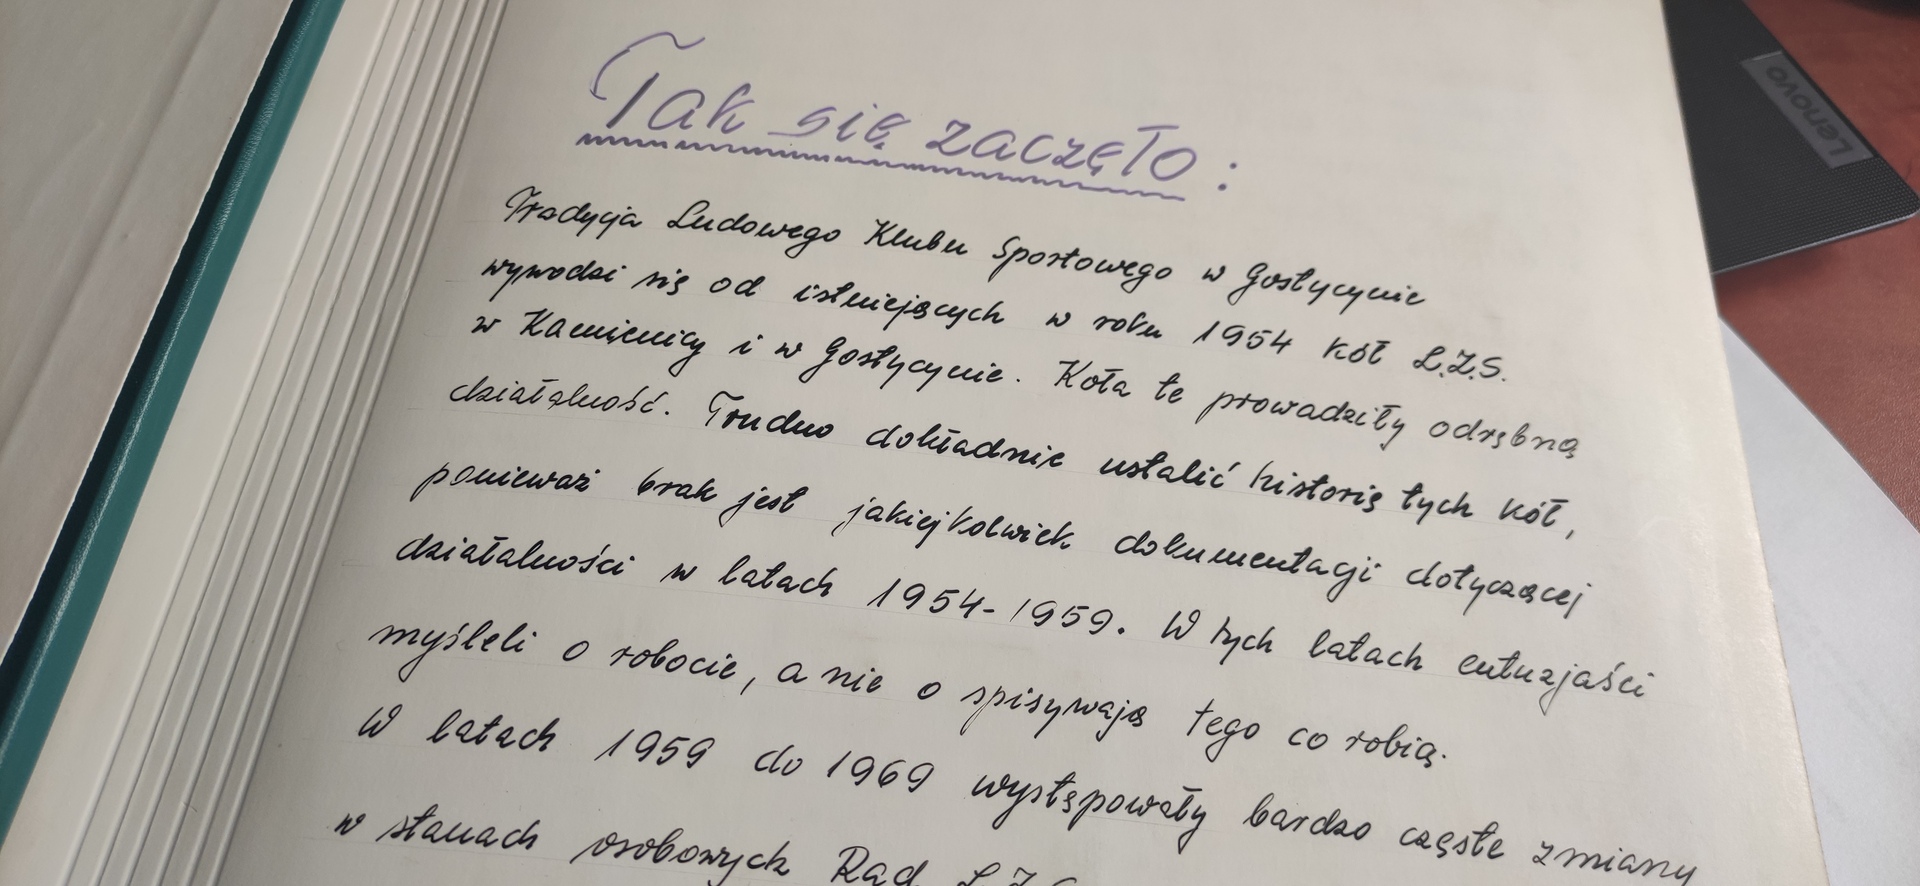 Tak się zaczęło:
Tradycja Ludowego Klubu Sportowego w Gostycynie
wywodzi się od istniejących w roku 1954 kół L.Z.S.
w Kamienicy i w Gostycynie. Koła te prowadziły odrębną
działalność. Trudno dokładnie ustalić historię tych kół,
ponieważ brak jest jakiejkolwiek dokumentacji dotyczącej
działalności w latach 1954-1959. W tych latach entuzjaści
myśleli o robocie, a nie o spisywają tego co robią.
W latach 1959 do 1969 występowały bardzo częste zmiany
w stanach osobowych Rad L.Z.S
Lenovo